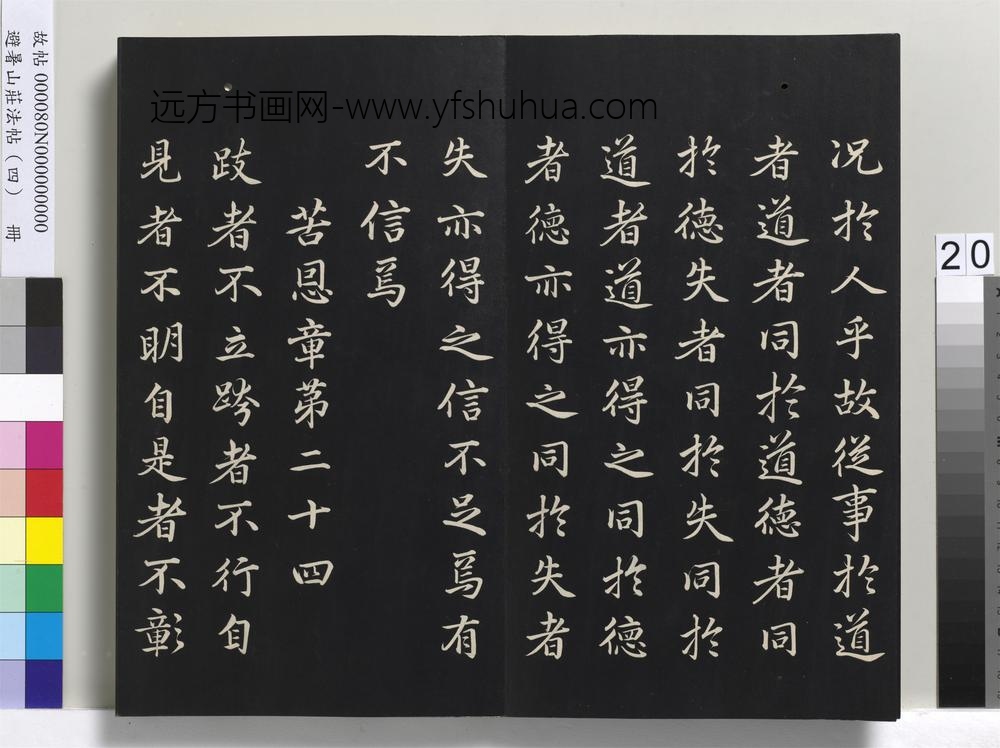 况於人乎故從事於道
者道者同於道德者同
於德失者同於失同於
道者道亦得之同於德
者德亦得之同於失者
失亦得之信不足焉有
不信焉
苦恩章第二十四
跂者不立跨者不行自
見者不明自是者不彰
远方书画网-www.yfshuhua.com
故帖 000080N000000000
避暑山莊法帖(四) 冊
20